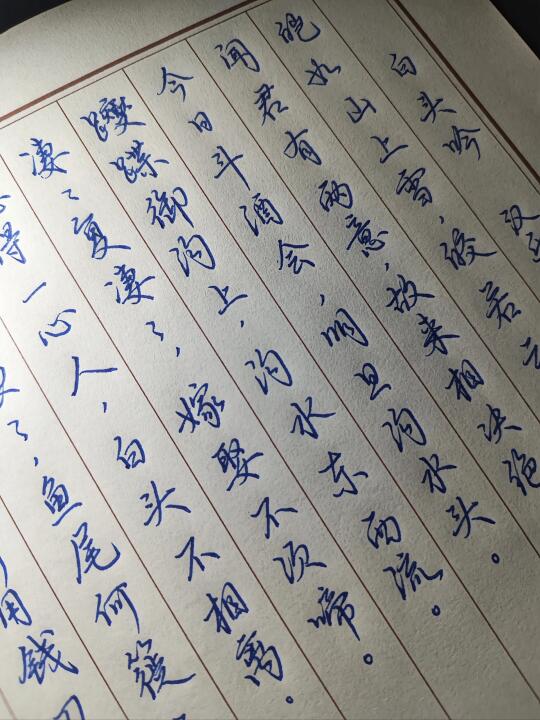 白头吟 汉
皑如山上雪，皎若云
闻君有两意，故来相决绝
今日斗酒会，明旦沟水头。
躞蹀御沟上，沟水东西流。
凄〻复凄〻，嫁娶不须啼。
得一心人，白头不相离。
〻，鱼尾何簁
用钱